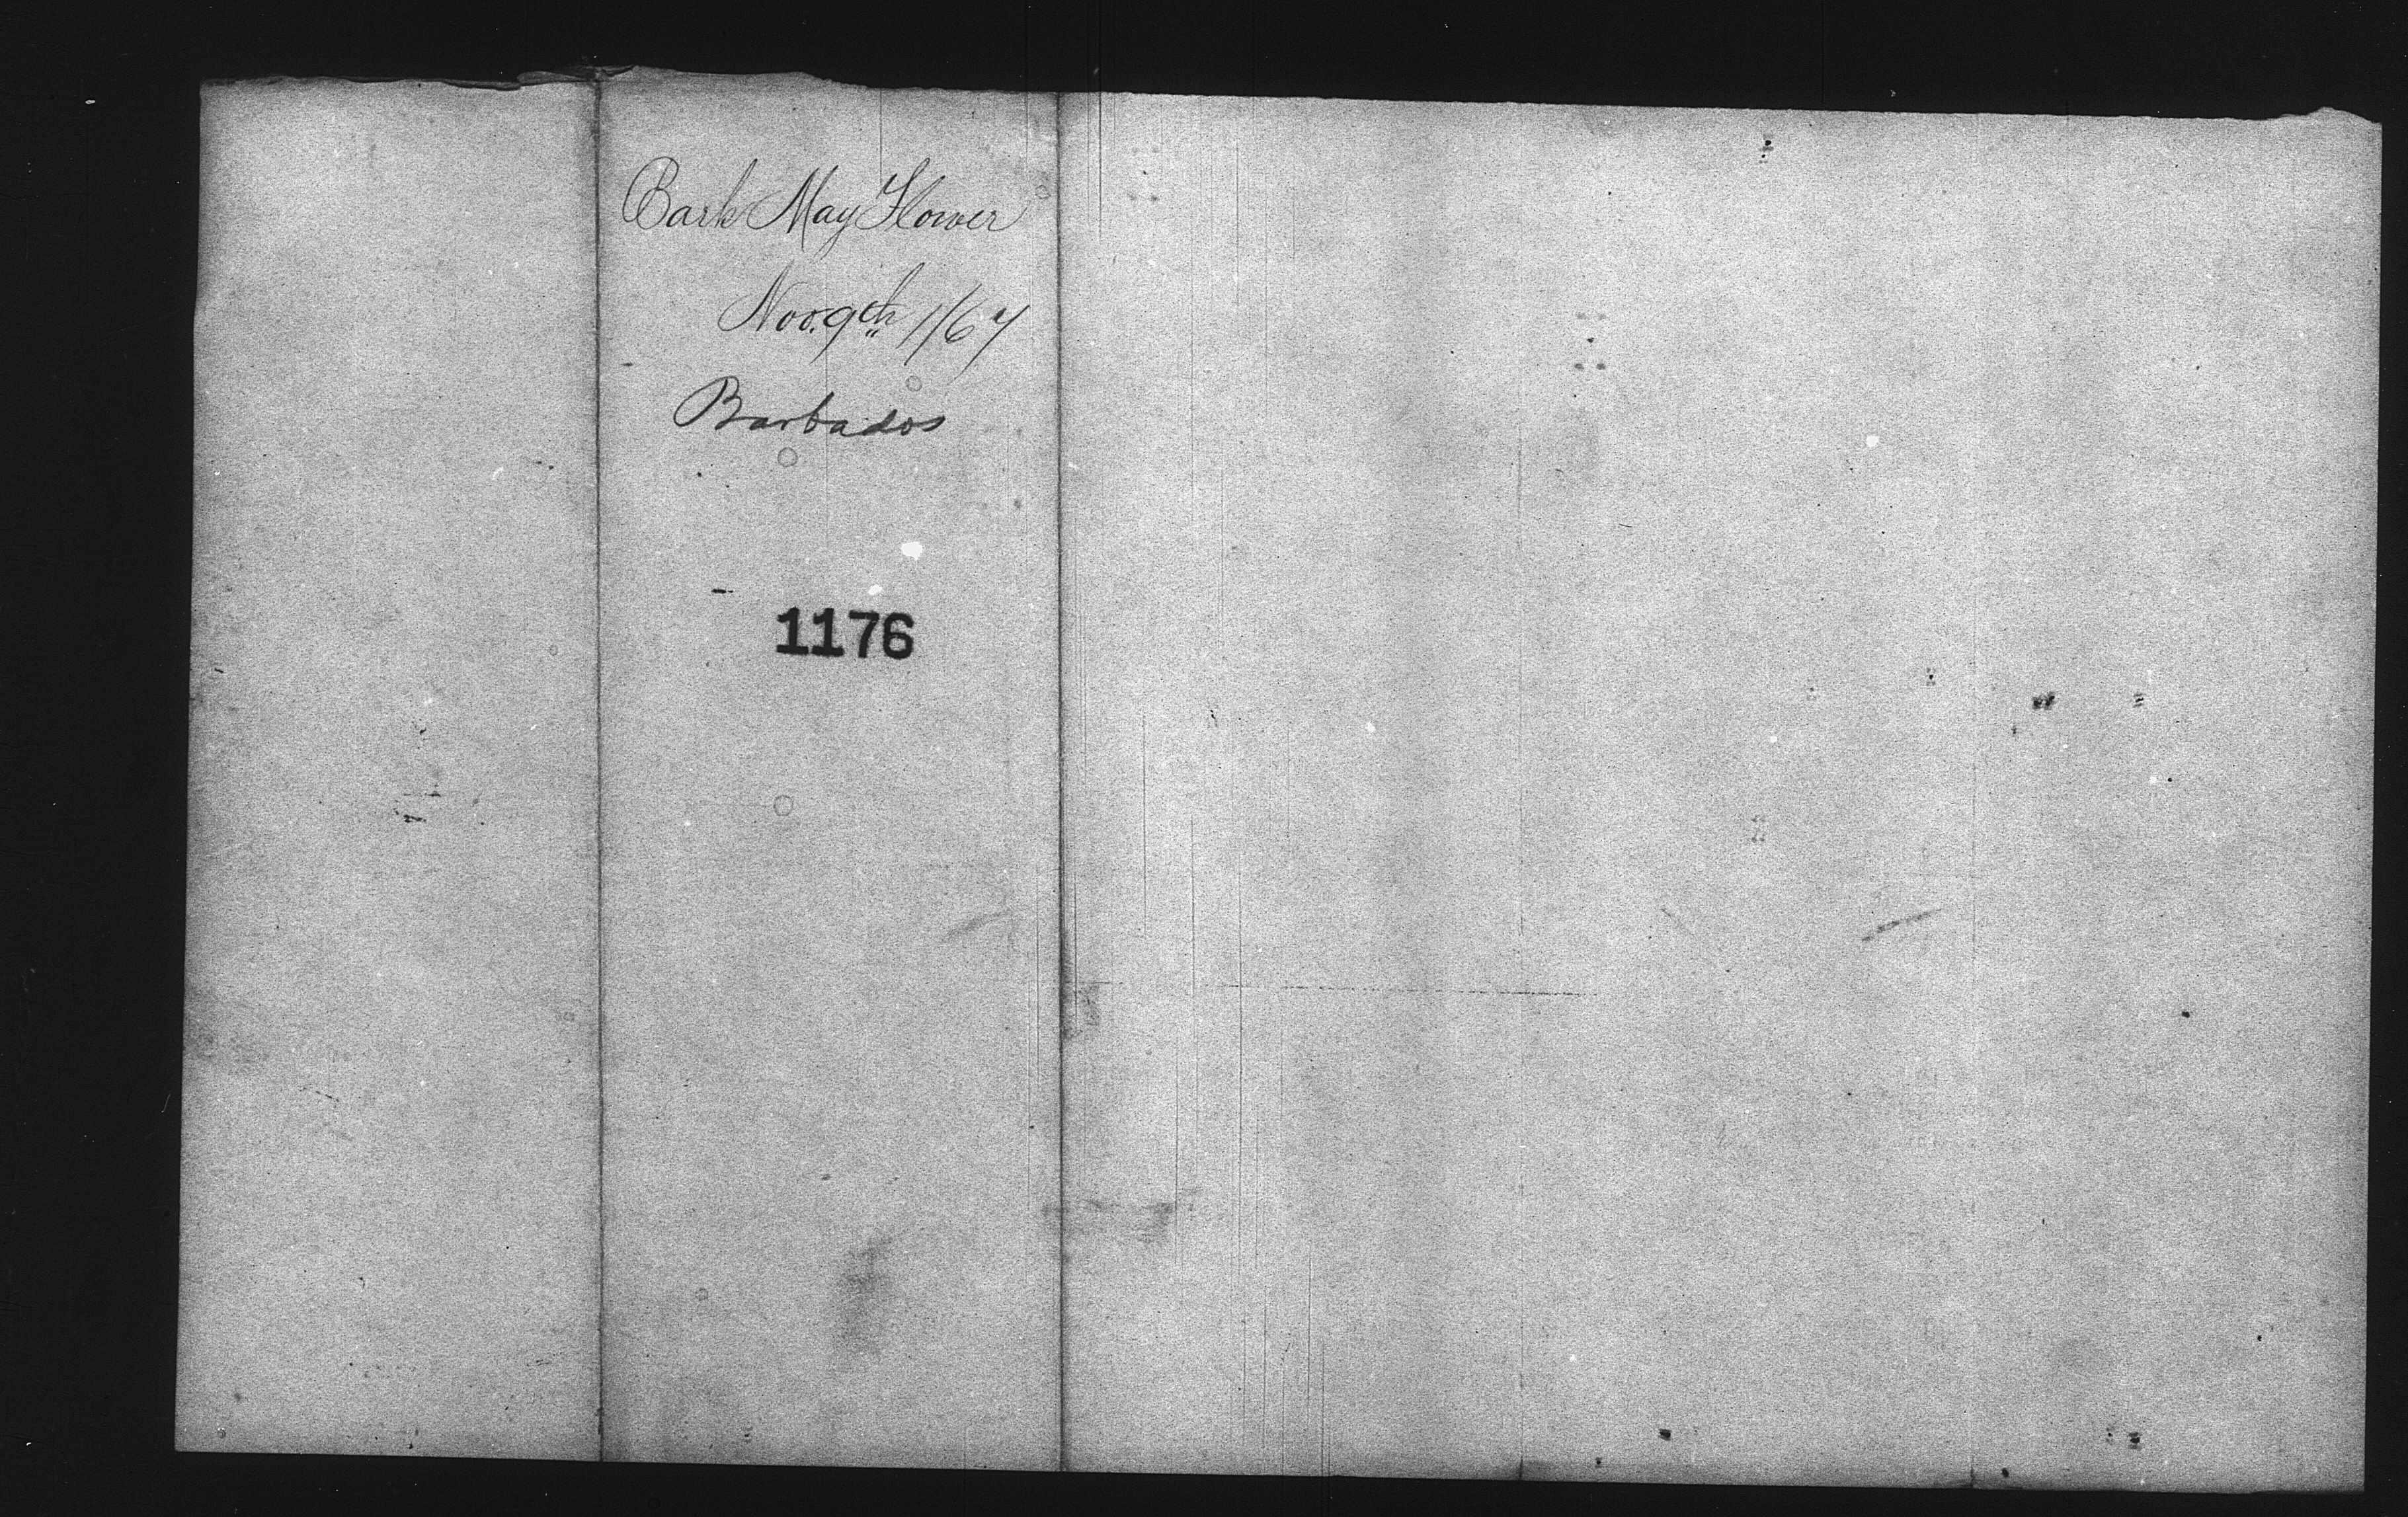 Bark May Flower
Nov. 9th 1/67
Barbados
1176